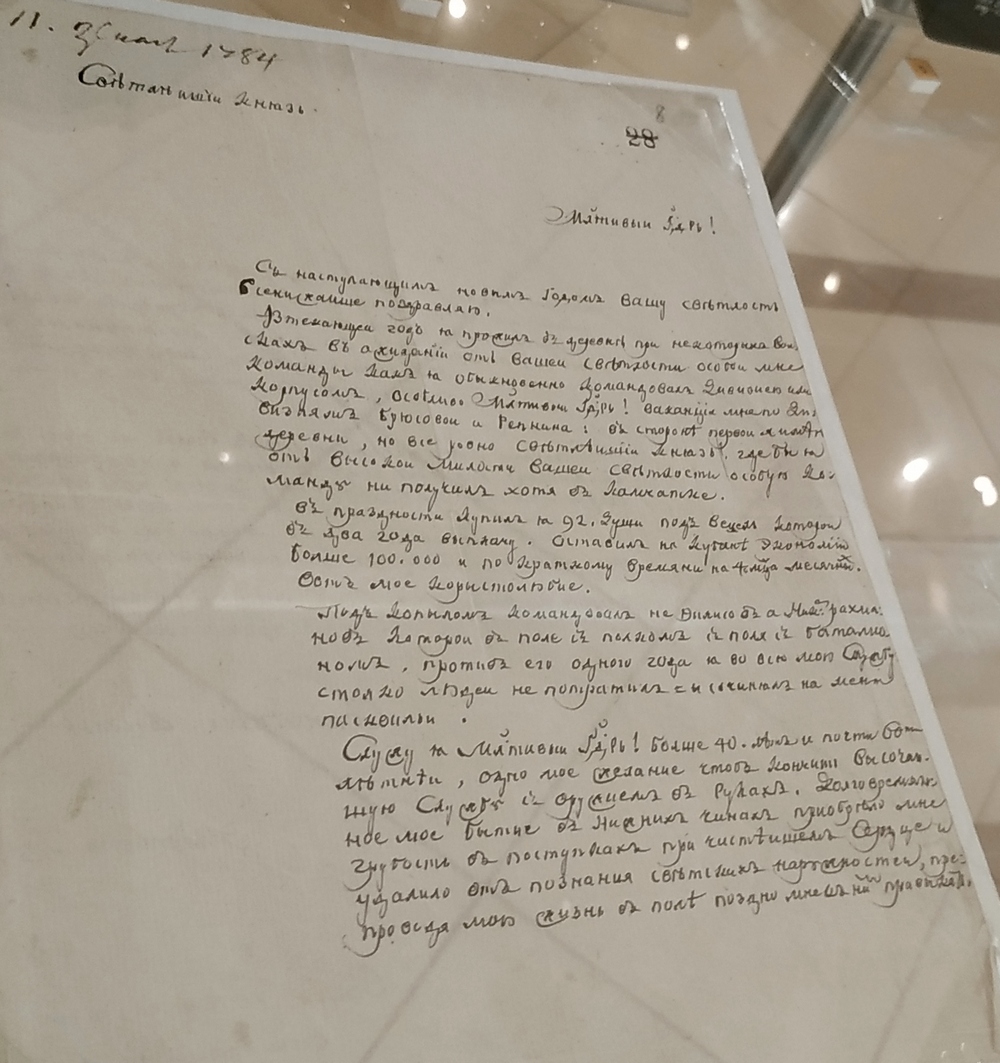 11. 1784
Свѣтлѣишіи Князь.
8
28
Млтивыи Гдрь!
Съ наступающимъ новымъ годомъ вашу свѣтлость
всенискаише поздравляю.
Втекающеи годъ я прожилъ въ деревнѣ при некоторыхъ
въ ожиданіи отъ вашеи свѣтлости особои мнѣ
команды какъ я обыкновенно командовалъ дивизиеи или
корпусомъ, особливо Млтивыи Гдрь! ваканціи мнѣ по
Брюсовои и Репнина: въ стороне первои я имѣл
деревни, но все равно Свѣтлѣишіи Князь! где бы я
отъ высокои милости вашеи свѣтлости особую ко:
манду ни получилъ хотя въ Камчатке.
въ праздности купилъ я 92. души подъ которои
въ два года выплачу. оставилъ на Кубанѣ экономіи
болше 100.000 и по краткому времяни на 4
Вотъ мое корыстолюбие.
Подъ Копыломъ командовалъ не а
новъ которои въ поле съ полкомъ съ поля съ баталио
номъ, противъ его одного года я во всю мою службу
столко людеи не попратилъ и сочинялъ на меня
пасквильи.
Служу я Млтивыи Гдрь! болше 40. лѣтъ и почти
лѣтніи, одно мое желание чтобъ кончить высочаи:
шую службу съ оружиемъ въ рукахъ. Долговремян
ное мое бытие въ нижнихъ чинахъ приобрѣло мне
грубость въ поступкахъ при чистѣишемъ сердце и
удалило отъ познания свѣтскихъ наружностеи, пре:
проводя мою жизнь въ полѣ поздно мне къ нимъ